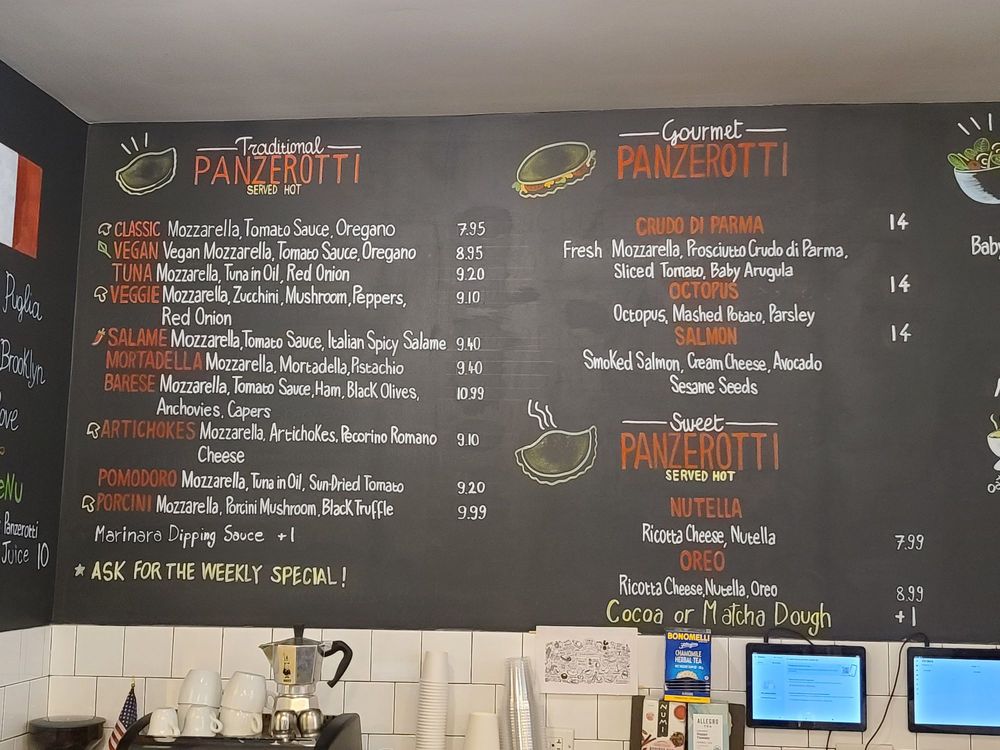 Puglia
Brooklyn
Panzerotti
Juice 10
Traditional
PANZEROTTI
SERVED HOT
CLASSIC Mozzarella, Tomato Sauce, Oregano 7.95
VEGAN Vegan Mozzarella, Tomato Sauce, Oregano 8.95
TUNA Mozzarella, Tuna in Oil, Red Onion 9.20
VEGGIE Mozzarella, Zucchini, Mushroom, Peppers, 9.10
Red Onion
SALAME Mozzarella, Tomato Sauce, Italian Spicy Salame 9.40
MORTADELLA Mozzarella, Mortadella, Pistachio 9.40
BARESE Mozzarella, Tomato Sauce, Ham, Black Olives, 10.99
Anchovies, Capers
ARTICHOKES Mozzarella, Artichokes, Pecorino Romano 9.10
Cheese
POMODORO Mozzarella, Tuna in Oil, Sun-Dried Tomato 9.20
PORCINI Mozzarella, Porcini Mushroom, Black Truffle 9.99
Marinara Dipping Sauce +1
ASK FOR THE WEEKLY SPECIAL!
Gourmet
PANZEROTTI
CRUDO DI PARMA 14
Fresh Mozzarella, Prosciutto Crudo di Parma,
Sliced Tomato, Baby Arugula
OCTOPUS 14
Octopus, Mashed Potato, Parsley
SALMON 14
Smoked Salmon, Cream Cheese, Avocado
Sesame Seeds
Sweet
PANZEROTTI
SERVED HOT
NUTELLA
Ricotta Cheese, Nutella 7.99
OREO
Ricotta Cheese, Nutella, Oreo 8.99
Cocoa or Matcha Dough +1
Baby
BONOMELLI
CHAMOMILE
HERBAL TEA
NUMI
ALLEGRO